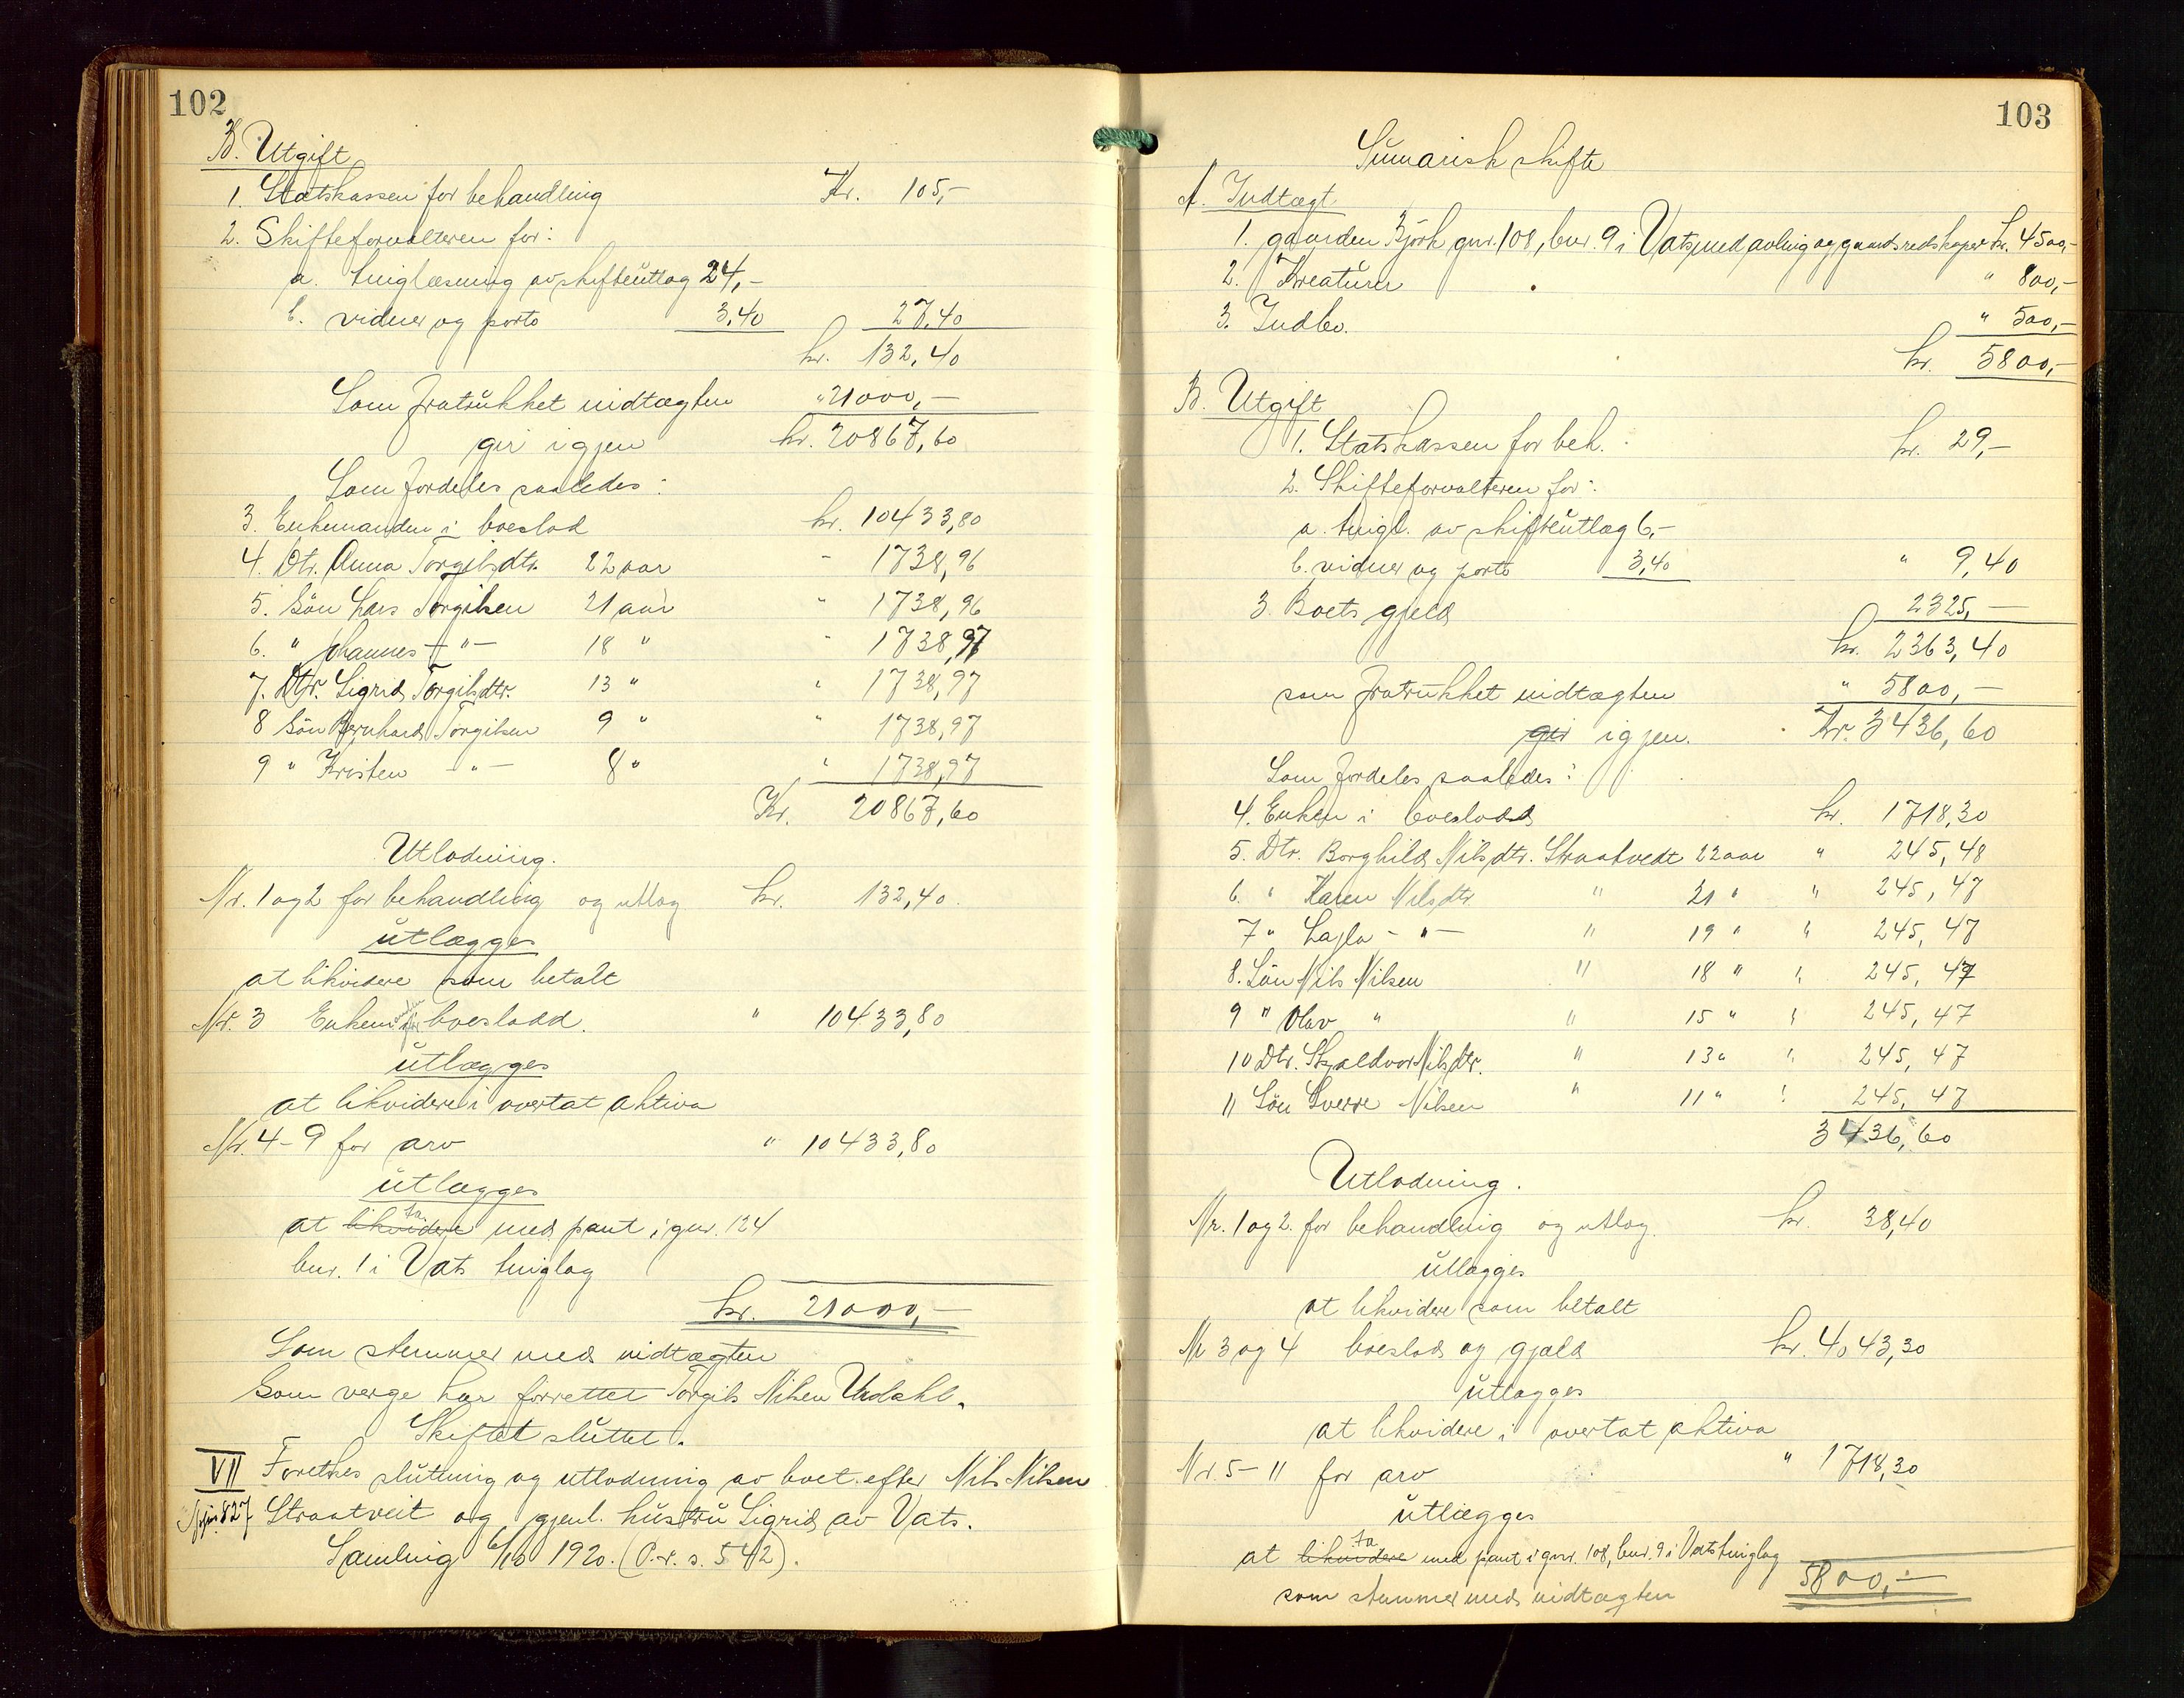 102
B. Utgift
1. Statskassen for behandling Kr. 105,-
2. Skifteforvalteren for:
a. tinglæsning av skifteutlæg 24,-
b. vidner og porto 3,40 27,40
kr. 132,40
Som fratrukket indtægten " 21000,-
gir igjen kr. 20867,60
Som fordeles saaledes:
3. Enkemanden i boeslod kr. 10433,80
4. Dtr. Anna Torgilsdtr. 22 aar " 1738,96
5. Søn Lars Torgilsen 21 aar " 1738,96
6. " Johannes -"- 18 " " 1738,97
7. Dtr. Sigrid Torgilsdtr. 13 " " 1738,97
8 Søn Bernhard Torgilsen 9 " " 1738,97
9 " Kristen -"- 8 " " 1738,97
Kr. 20867,60
Utlodning.
Nr. 1 og 2 for behandling og utlæg kr. 132,40.
utlægges
at likvidere som betalt
Nr. 3 Enkem for boeslodd. " 10433,80
utlægges
at likvidere i overtat aktiva
Nr. 4-9 for arv " 10433,80
utlægges
at likvidere ta med pant i gnr. 124
bnr. 1 i Vats tinglag
kr. 21000,-
Som stemmer med indtægten
Som verge har forrettet Torgils Nilsen Urdahl.
Skiftet sluttet.
VII Foretokes slutning og utlodning av boet efter Nils Nilsen
827 Straatveit og gjenl. hustru Sigrid av Vats.
Samling 6/10 1920. (P.r. s. 542).
103
Sumarisk skifte
A. Indtægt
1. gaarden Bjørk gnr. 108, bnr. 9 i Vats, med avling og gaardsredskaper kr. 4500,-
2. Kreaturer " 800,-
3. Indbo. " 500,-
kr. 5800,-
B. Utgift
1. Statskassen for beh. kr. 29,-
2. Skifteforvalteren for:
a. tingl. av skifteutlæg 6,-
b. vidner og porto 3,40 " 9,40
3. Boets gjeld 2325,-
kr. 2363,40
som fratrukket indtægten " 5800,-
gir igjen. Kr. 3436,60
Som fordeles saaledes:
4. Enken i boeslodd kr. 1718,30
5. Dtr. Borghild Nilsdtr. Straatvedt 22 aar " 245,48
6. " Karen Nilsdtr. " 21 " " 245,47
7 " Lajla -"- " 19 " " 245,47
8. Søn Nils Nilsen " 18 " " 245,47
9 " Olav " " 15 " " 245,47
10 Dtr. Skjaldvor Nilsdtr. " 13 " " 245,47
11 Søn Sverre Nilsen " 11 " " 245,47
3436,60
Utlodning.
Nr. 1 og 2. for behandling og utlæg. kr. 38,40
utlægges
at likvidere som betalt
Nr 3 og 4 boeslod og gjæld kr. 4043,30
utlægges
at likvidere i overtat aktiva
Nr. 5-11 for arv " 1718,30
utlægges
at likvidere ta med pant i gnr. 108, bnr. 9 i Vats tinglag
5800,-
som stemmer med indtægten